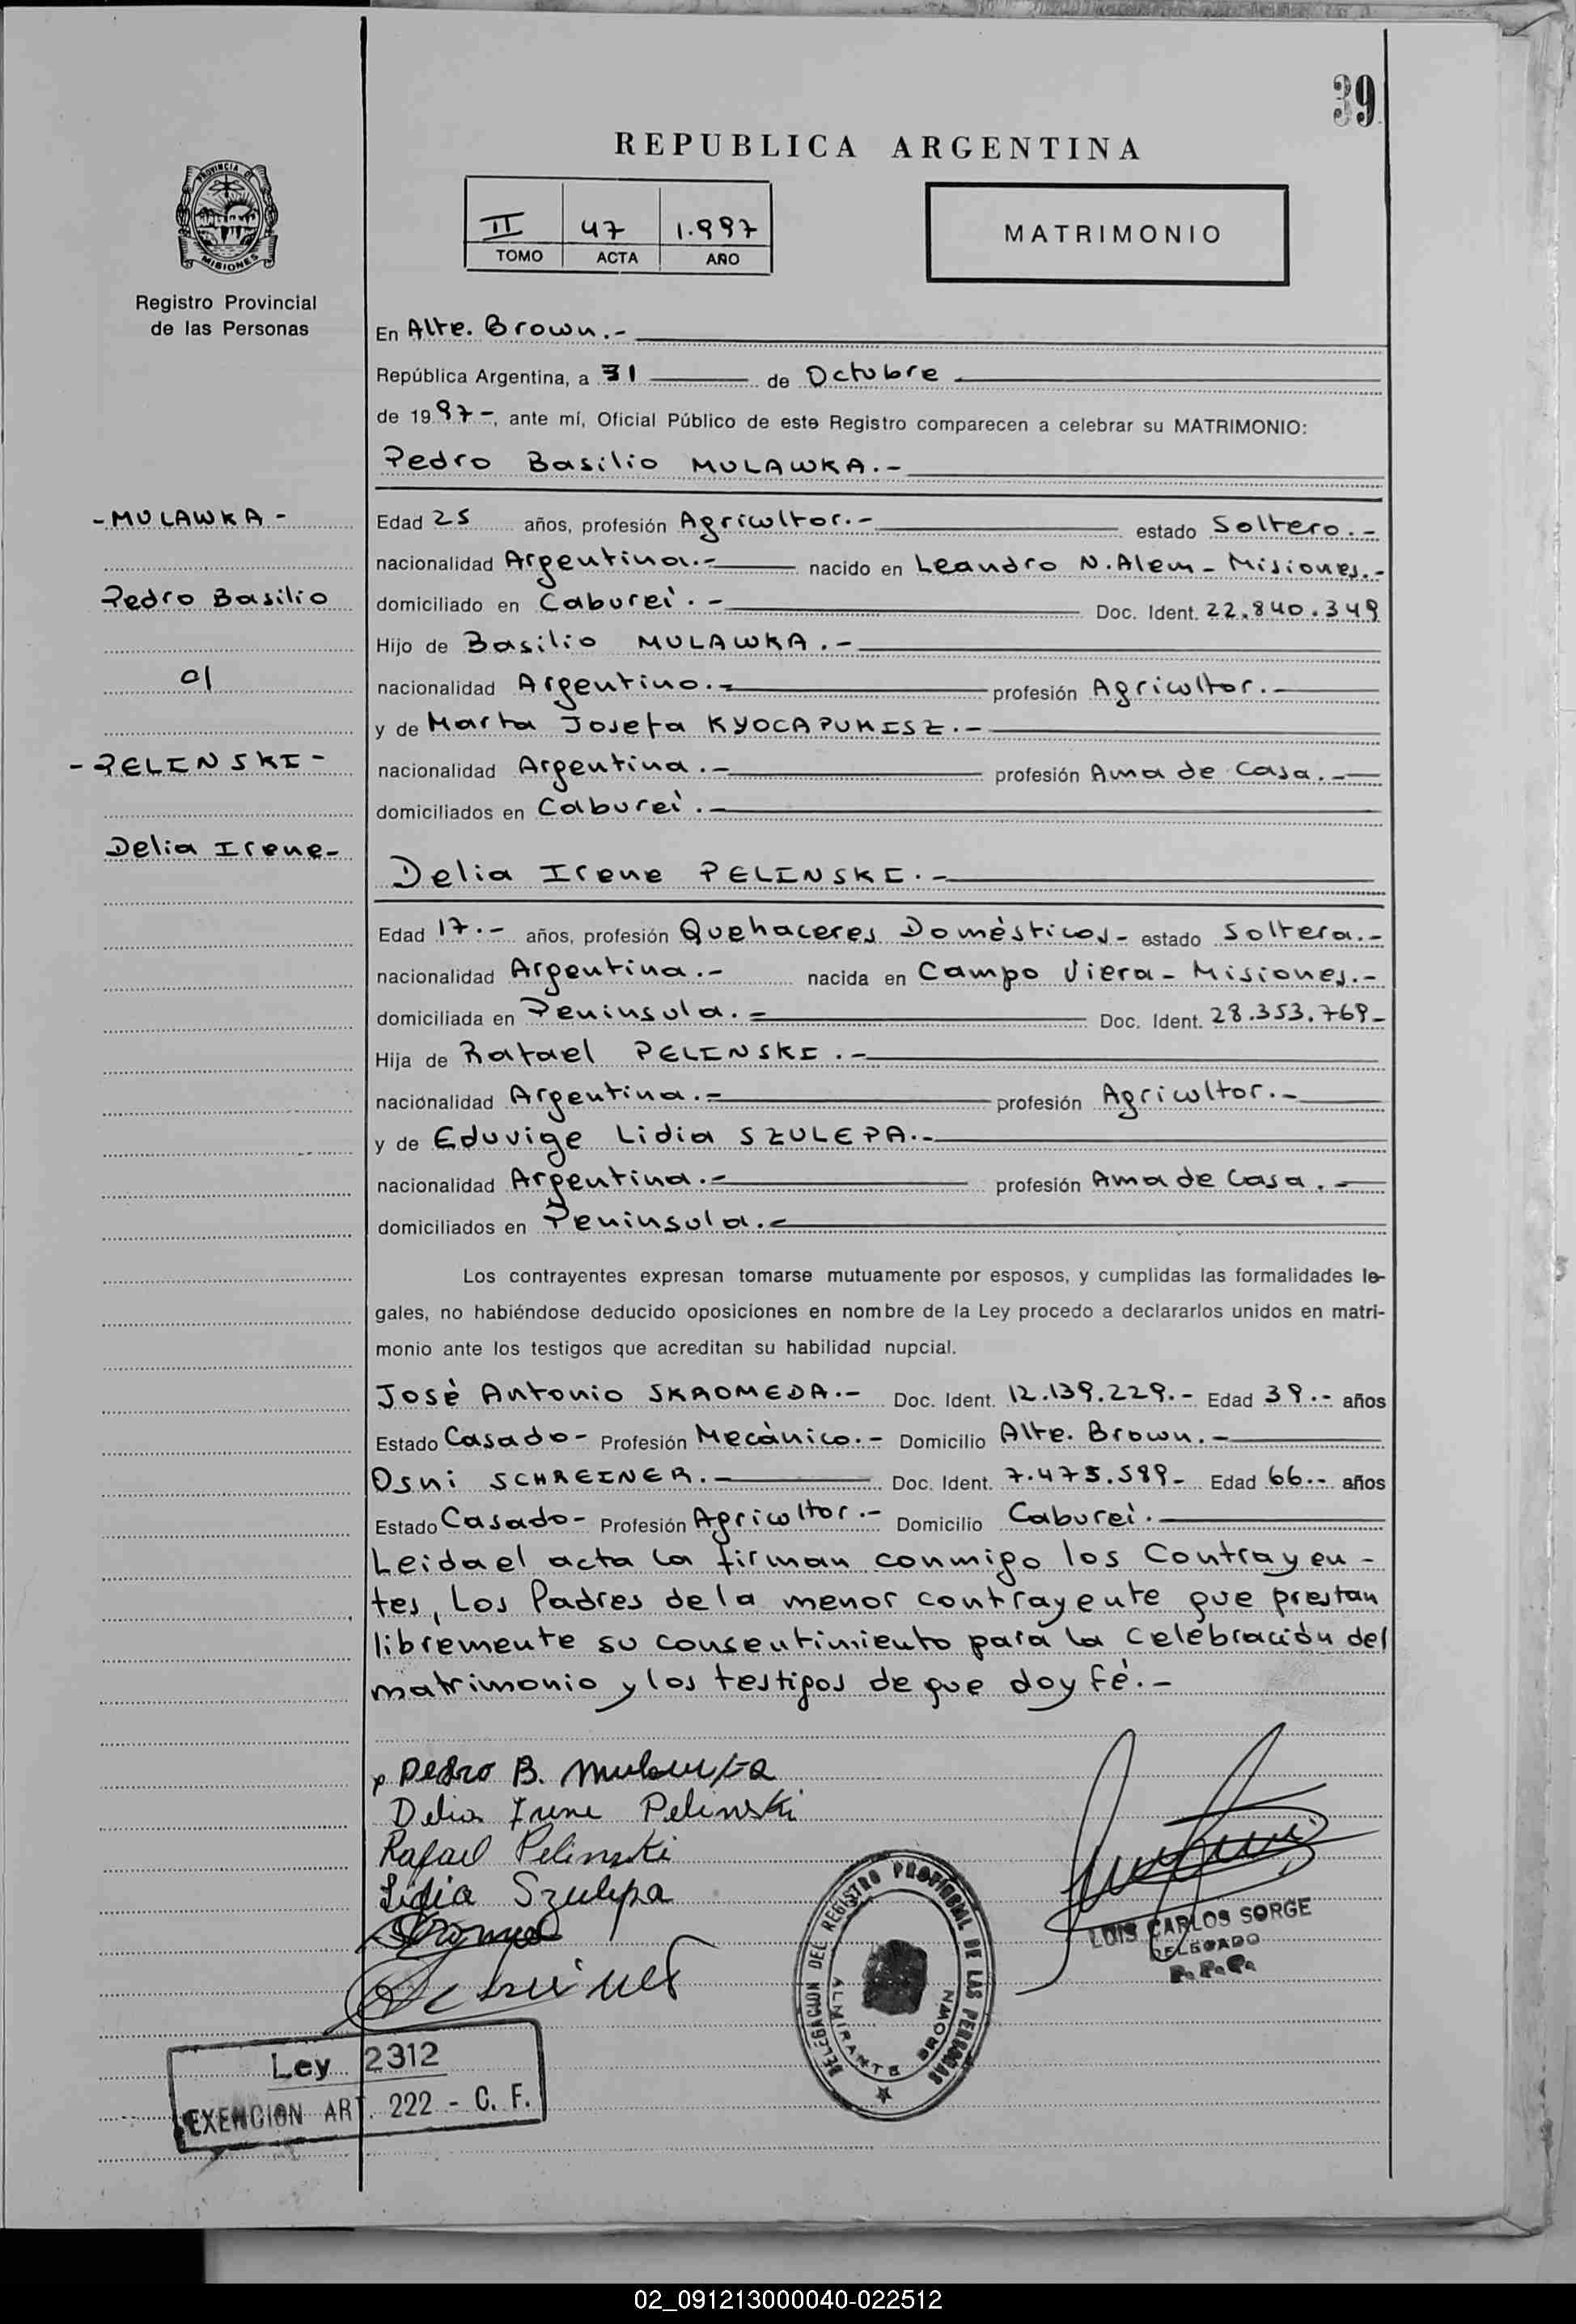 39
REPUBLICA ARGENTINA
II 47 1.997
TOMO ACTA AÑO
MATRIMONIO
PROVINCIA DE MISIONES
Registro Provincial
de las Personas
En Alte. Brown.-
República Argentina, a 31 de Octubre
de 1997-, ante mí, Oficial Público de este Registro comparecen a celebrar su MATRIMONIO:
Pedro Basilio MULAWKA.-
-MULAWKA-
Pedro Basilio
01
-PELINSKI-
Delia Irene-
Edad 25 años, profesión Agricultor.- estado Soltero.-
nacionalidad Argentina.- nacido en Leandro N. Alem - Misiones.-
domiciliado en Caburei.- Doc. Ident. 22.840.349
Hijo de Basilio MULAWKA.-
nacionalidad Argentino.- profesión Agricultor.-
y de Marta Josefa KYOCAPUKISZ.-
nacionalidad Argentina.- profesión Ama de Casa.-
domiciliados en Caburei.-
Delia Irene PELINSKI.-
Edad 17.- años, profesión Quehaceres Domèsticos- estado Soltera.-
nacionalidad Argentina.- nacida en Campo Viera - Misiones.-
domiciliada en Peninsula.- Doc. Ident. 28.353.769-
Hija de Rafael PELINSKI.-
nacionalidad Argentina.- profesión Agricultor.-
y de Eduvige Lidia SZULEPA.-
nacionalidad Argentina.- profesión Ama de Casa.-
domiciliados en Peninsula.-
Los contrayentes expresan tomarse mutuamente por esposos, y cumplidas las formalidades le-
gales, no habiéndose deducido oposiciones en nombre de la Ley procedo a declararlos unidos en matri-
monio ante los testigos que acreditan su habilidad nupcial.
Josè Antonio SKROMEDA.- Doc. Ident. 12.139.229.- Edad 39.- años
Estado Casado- Profesión Mecànico.- Domicilio Alte. Brown.-
Osni SCHREINER.- Doc. Ident. 7.475.589- Edad 66.- años
Estado Casado- Profesión Agricultor.- Domicilio Caburei.-
Leida el acta la firman conmigo los Contrayen-
tes, Los Padres de la menor contrayente que prestan
libremente su consentimiento para la Celebraciòn del
matrimonio y los testigos de que doy fè.-
Pedro B. Mulawka
Delia Irene Pelinski
Rafael Pelinski
Lidia Szulepa
Schreiner
DELEGACION DEL REGISTRO PROVINCIAL DE LAS PERSONAS
ALMIRANTE BROWN
LUIS CARLOS SORGE
DELEGADO
R.P.P.
Ley 2312
EXENCION ART. 222 - C. F.
02_091213000040-022512